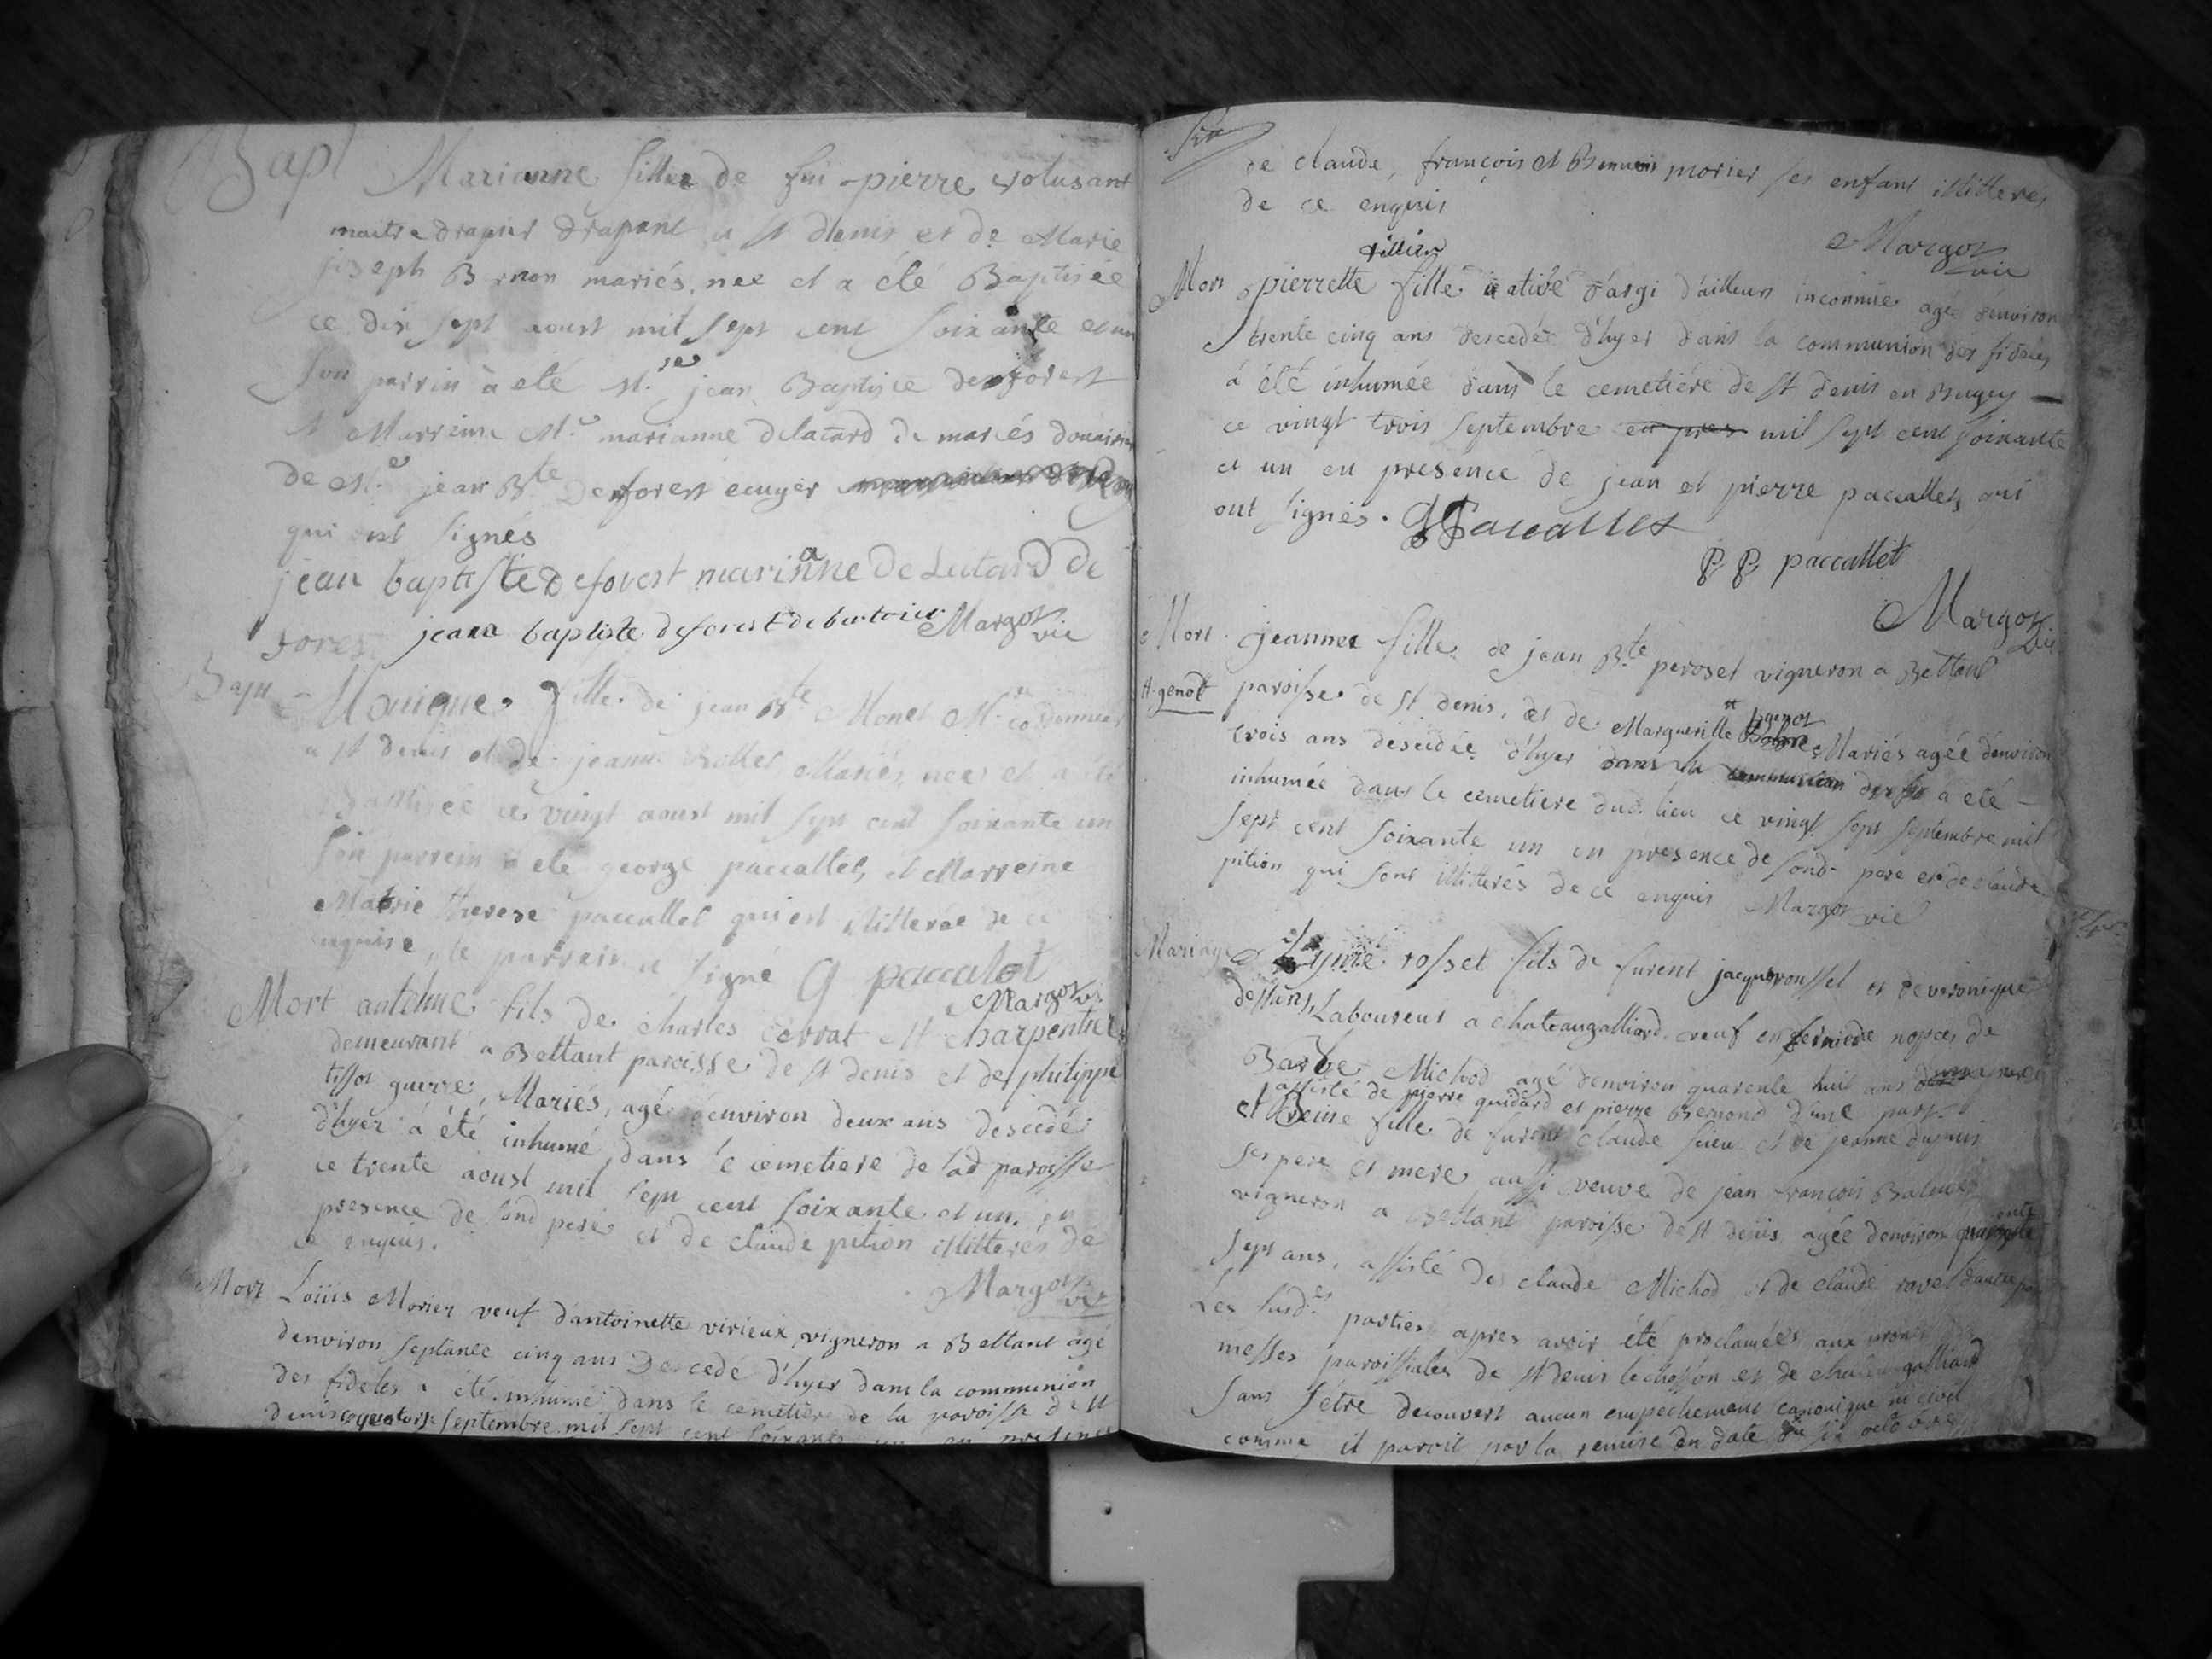 Bapt Marianne fille de feu pierre volusant
maitre drapier drapant a st denis et de Marie
joseph Brnon mariés, née et a été Baptisée
ce dix sept aoust mil sept cent soixante et un
son parrin à eté Mre jean Baptiste deforest
et Marreine Me marianne delatard de mariés douairiere
de Mre jean Bte Deforest ecuyer
qui ont signés
jean baptiste Deforest marianne De Latard De
forest jean baptiste deforest Margot vic
Bapt Monique fille de jean Bte Monet Me cordonnier
a st denis et de jeanne Mariés, née et a été
Baptisée ce vingt aoust mil sept cent soixante un
son parrein a eté george paccallet, et Marreine
Marie therese paccallet qui est illiterée de ce
enquise, le parrein a signé G paccalet
Margot vic
Mort antelme fils de charles Cerrat Me charpentier
demeurant a Bettant paroisse de st denis et de philippe
tissot guerre, Mariés, agé d'environ deux ans descedé
d'hyer à été inhumé dans le cemetiere de lad paroisse
ce trente aoust mil sept cent soixante et un. en
presence de sond pere et de claude pition illitteres de
ce enquis.
Margot vic
Mort Loüis Morier veuf d'antoinette virieux vigneron a Bettant agé
denviron septante cinq ans Descedé d'hyer dans la communion
des fideles a été inhumé dans le cemetiere de la paroisse de st
denis ce quatorze septembre mil sept cent soixante un en presence
de claude, françois et Bennoit morier ses enfant illitteres
de ce enquis
Margot vic
Mort pierrette fillion fille native d'argi d'ailleurs inconnüe agée d'environ
trente cinq ans descedée d'hyer dans la communion des fideles
à été inhumée dans le cemetiére de st denis en Bugey
ce vingt trois septembre en pres mil sept cent soixante
et un en presence de jean et pierre paccallet, qui
ont signés. J Paccallet
P. P. paccallet
Margot vic
Mort. jeanne fille de jean Bte peroset vigneron a Bettant
H. genot paroisse de st denis, et de Margueritte H genot Mariés agée d'environ
trois ans descedée d'hyer dans la communion des fid a été
inhumée dans le cemetiere dud. lieu ce vingt sept septembre mil
sept cent soixante un en presence de sond. pere et de claude
pition qui sont illitterés de ce enquis Margot vic
Mariage rosset fils de furent jacque rousset et de veronique
desfuns, Laboureur a chateaugalliard veuf en derniere nopces de
Barbe Michod agé denviron quarente huit ans
assisté de pierre guidard et pierre Bernond d'une part
et Reine fille de furent claude sicu et de jeanne dupuis
ses pere et mere aussi veuve de jean françois Balme
vigneron a Bettant paroisse de st denis agée denviron quarente
sept ans, assisté de claude Michod et de claude ravet d'autre part
Les susd.es parties apres avoir été proclamées aux prones des
messes paroissiales de st Denis le chosson et de chateaugalliard
sans s'être decouvert aucun empechement canonique ni civil
comme il paroit par la remise en date du six octobre